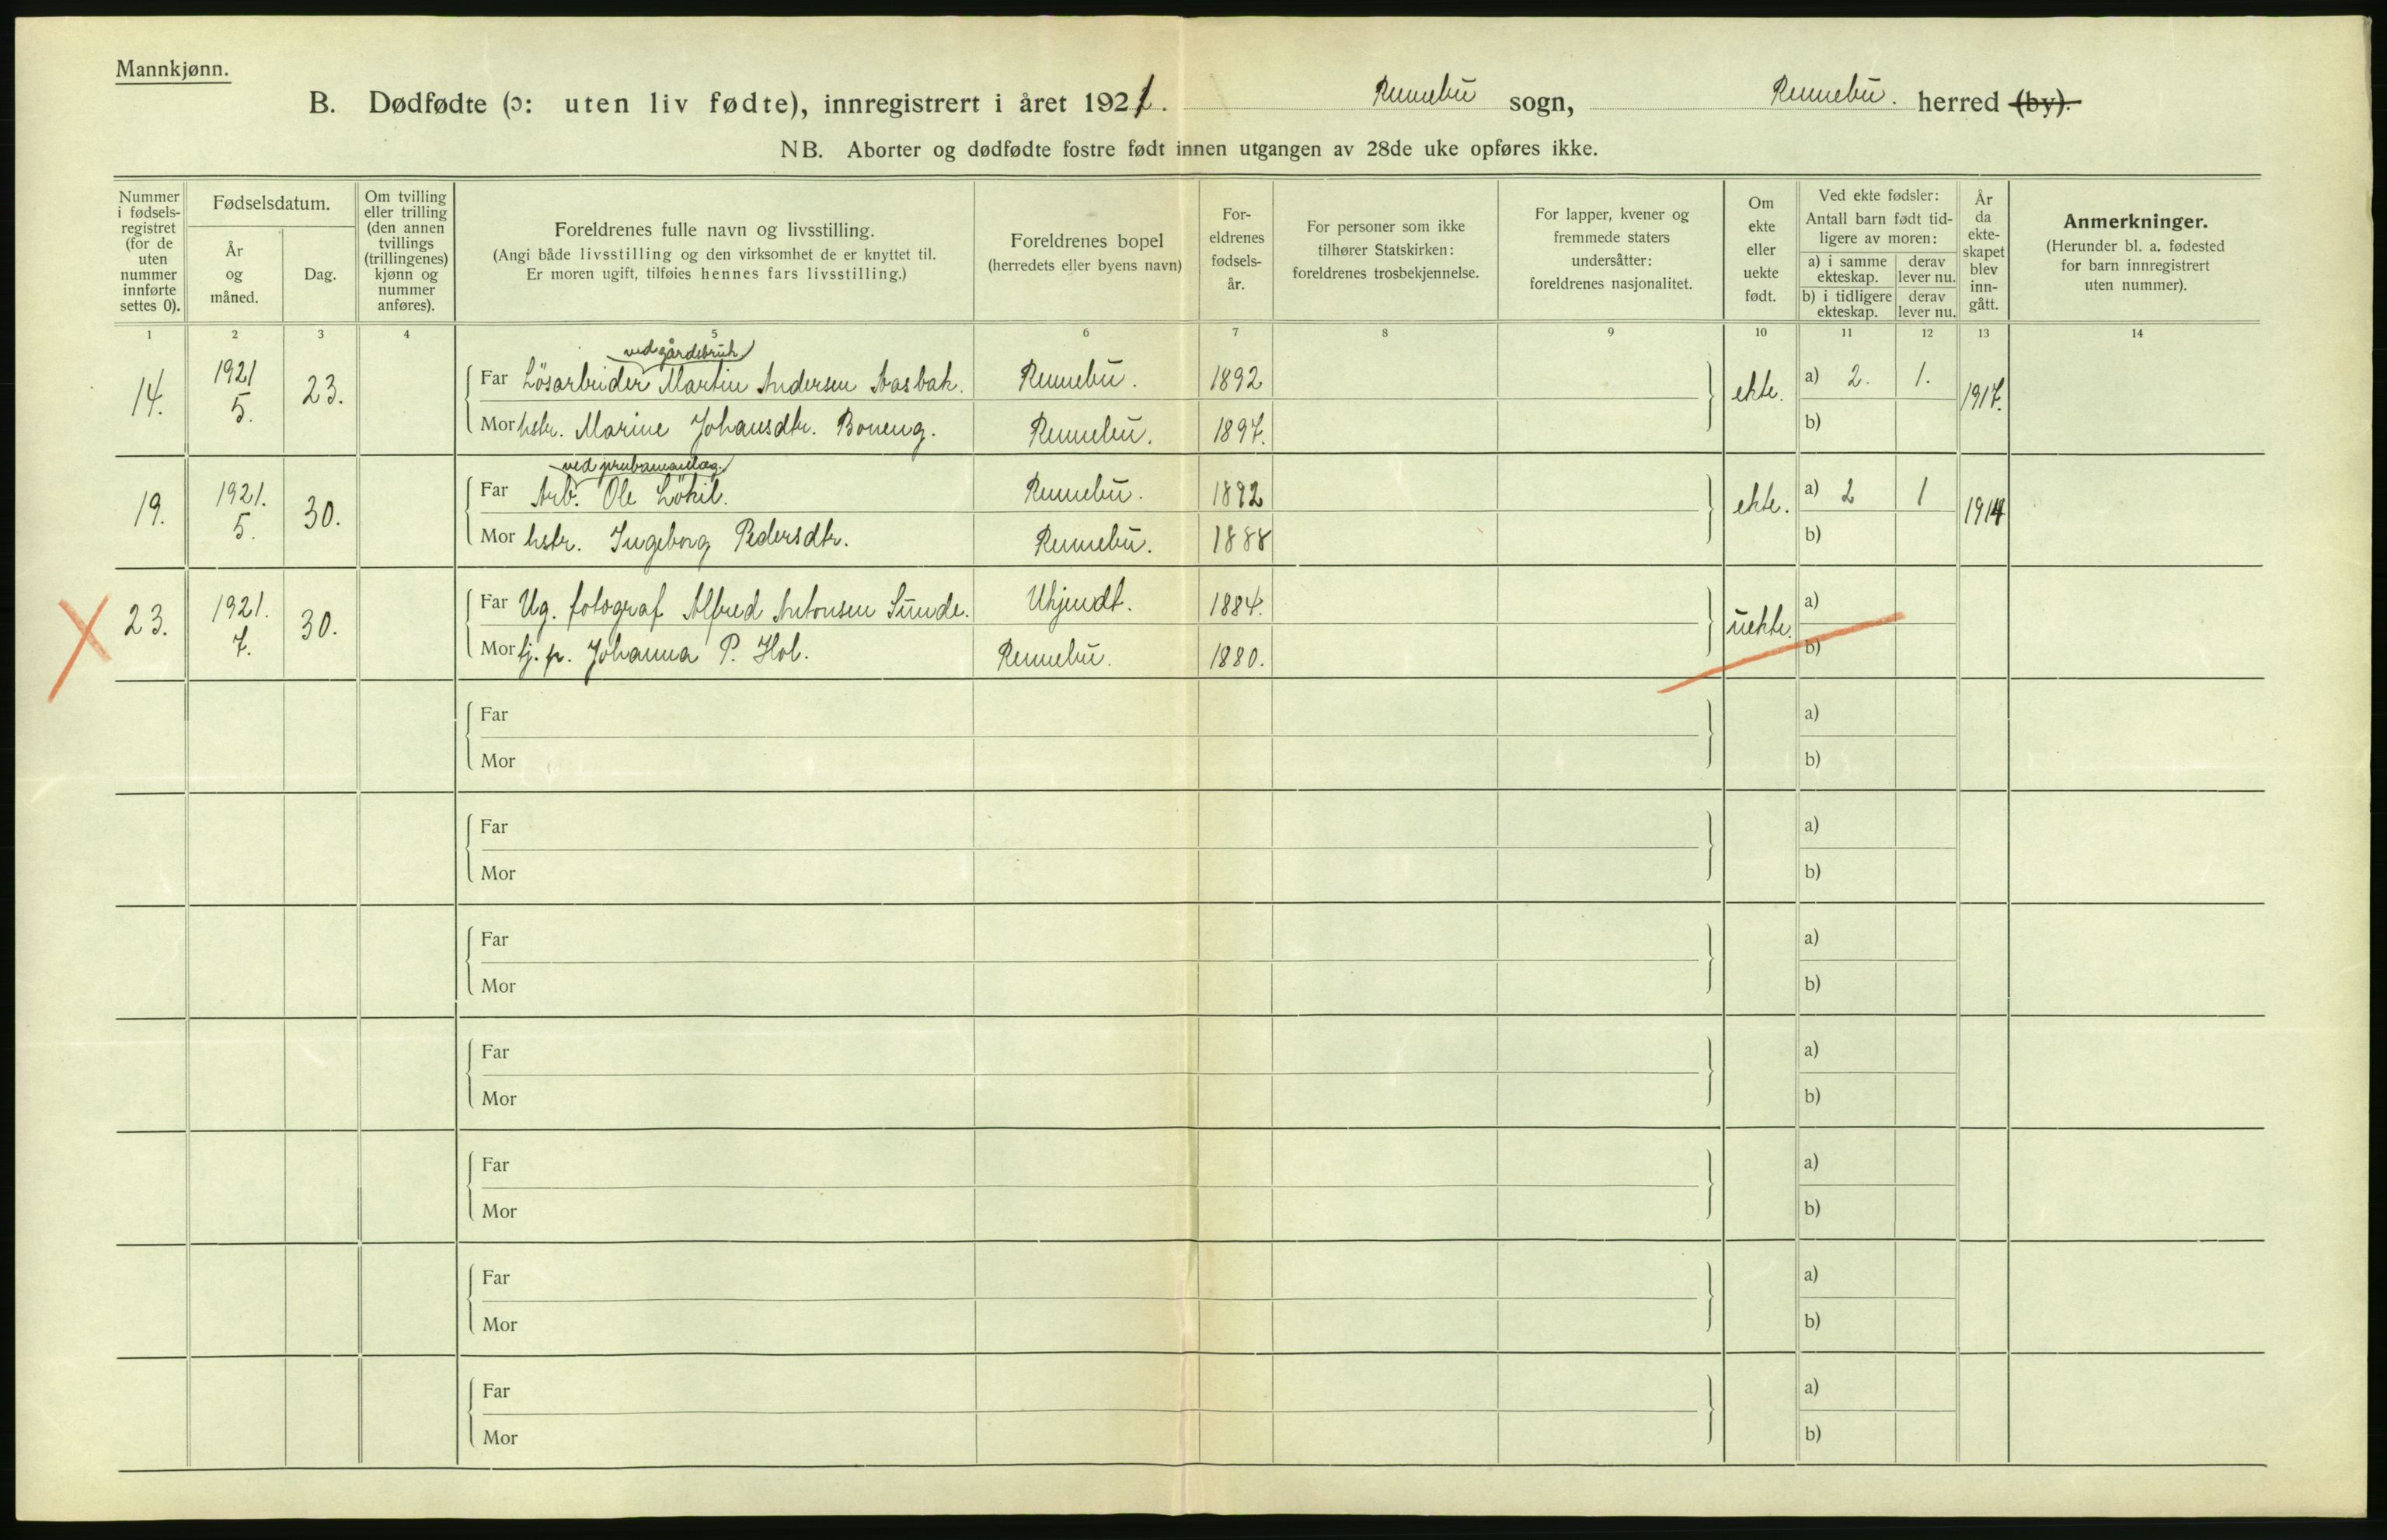 Mannkjønn.
B. Dødfødte (ɔ: uten liv fødte), innregistrert i året 1921. Rennebu sogn, Rennebu. herred (by).
NB. Aborter og dødfødte fostre født innen utgangen av 28de uke opføres ikke.
Nummer i fødsels-registret (for de uten nummer innførte settes 0).
Fødselsdatum.
År og måned.
Dag.
Om tvilling eller trilling (den annen tvillings (trillingenes) kjønn og nummer anføres).
Foreldrenes fulle navn og livsstilling.
(Angi både livsstilling og den virksomhet de er knyttet til.
Er moren ugift, tilføies hennes fars livsstilling.)
Foreldrenes bopel
(herredets eller byens navn)
For-eldrenes fødsels-år.
For personer som ikke tilhører Statskirken: foreldrenes trosbekjennelse.
For lapper, kvener og fremmede staters undersåtter: foreldrenes nasjonalitet.
Om ekte eller uekte født.
Ved ekte fødsler:
Antall barn født tid-ligere av moren:
a) i samme ekteskap. derav lever nu.
b) i tidligere ekteskap. derav lever nu.
År da ekte-skapet blev inn-gått.
Anmerkninger.
(Herunder bl. a. fødested for barn innregistrert uten nummer).
1 2 3 4 5 6 7 8 9 10 11 12 13 14
ved gårdsbruk
14. 1921 5. 23. Far Lösarbeider Martin Andersen Aasbak. Rennebu. 1892 ekte. a) 2. 1. 1917.
Mor hstr. Marine Johansdtr. Boneng. Rennebu. 1897. b)
ved
19. 1921. 5. 30. Far Arb. Ole Lökil. Rennebu. 1892 ekte. a) 2 1 1914
Mor hstr. Ingeborg Pedersdtr. Rennebu. 1888 b)
23. 1921. 7. 30. Far Ug. fotograf Alfred Antonsen Sunde. Ukjendt. 1884. uekte. a)
Mor tj. p. Johanna P. Hol. Rennebu. 1880. b)
Far a)
Mor b)
Far a)
Mor b)
Far a)
Mor b)
Far a)
Mor b)
Far a)
Mor b)
Far a)
Mor b)
Far a)
Mor b)